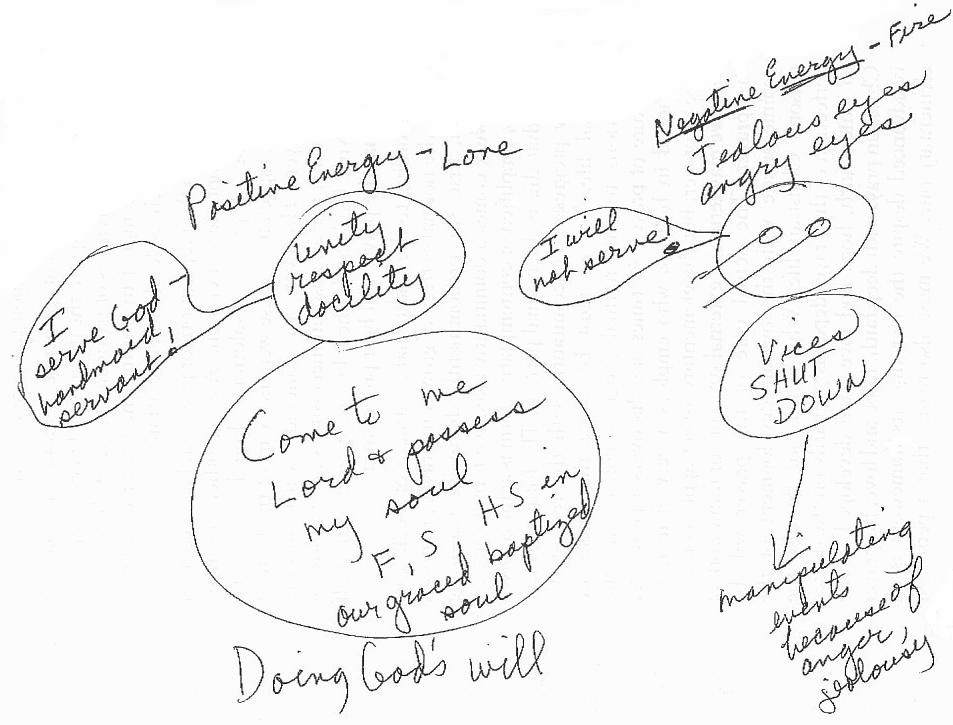 Positive Energy - Love
Unity
respect
docility
I
serve God -
handmaid,
servant!
Come to me
Lord & possess
my soul
F, S HS in
our graced baptized
soul
Doing God's will
Negative Energy - Fire
Jealous eyes
angry eyes
I will
not serve!
Vices
SHUT
DOWN
manipulating
events
because of
anger,
jealousy